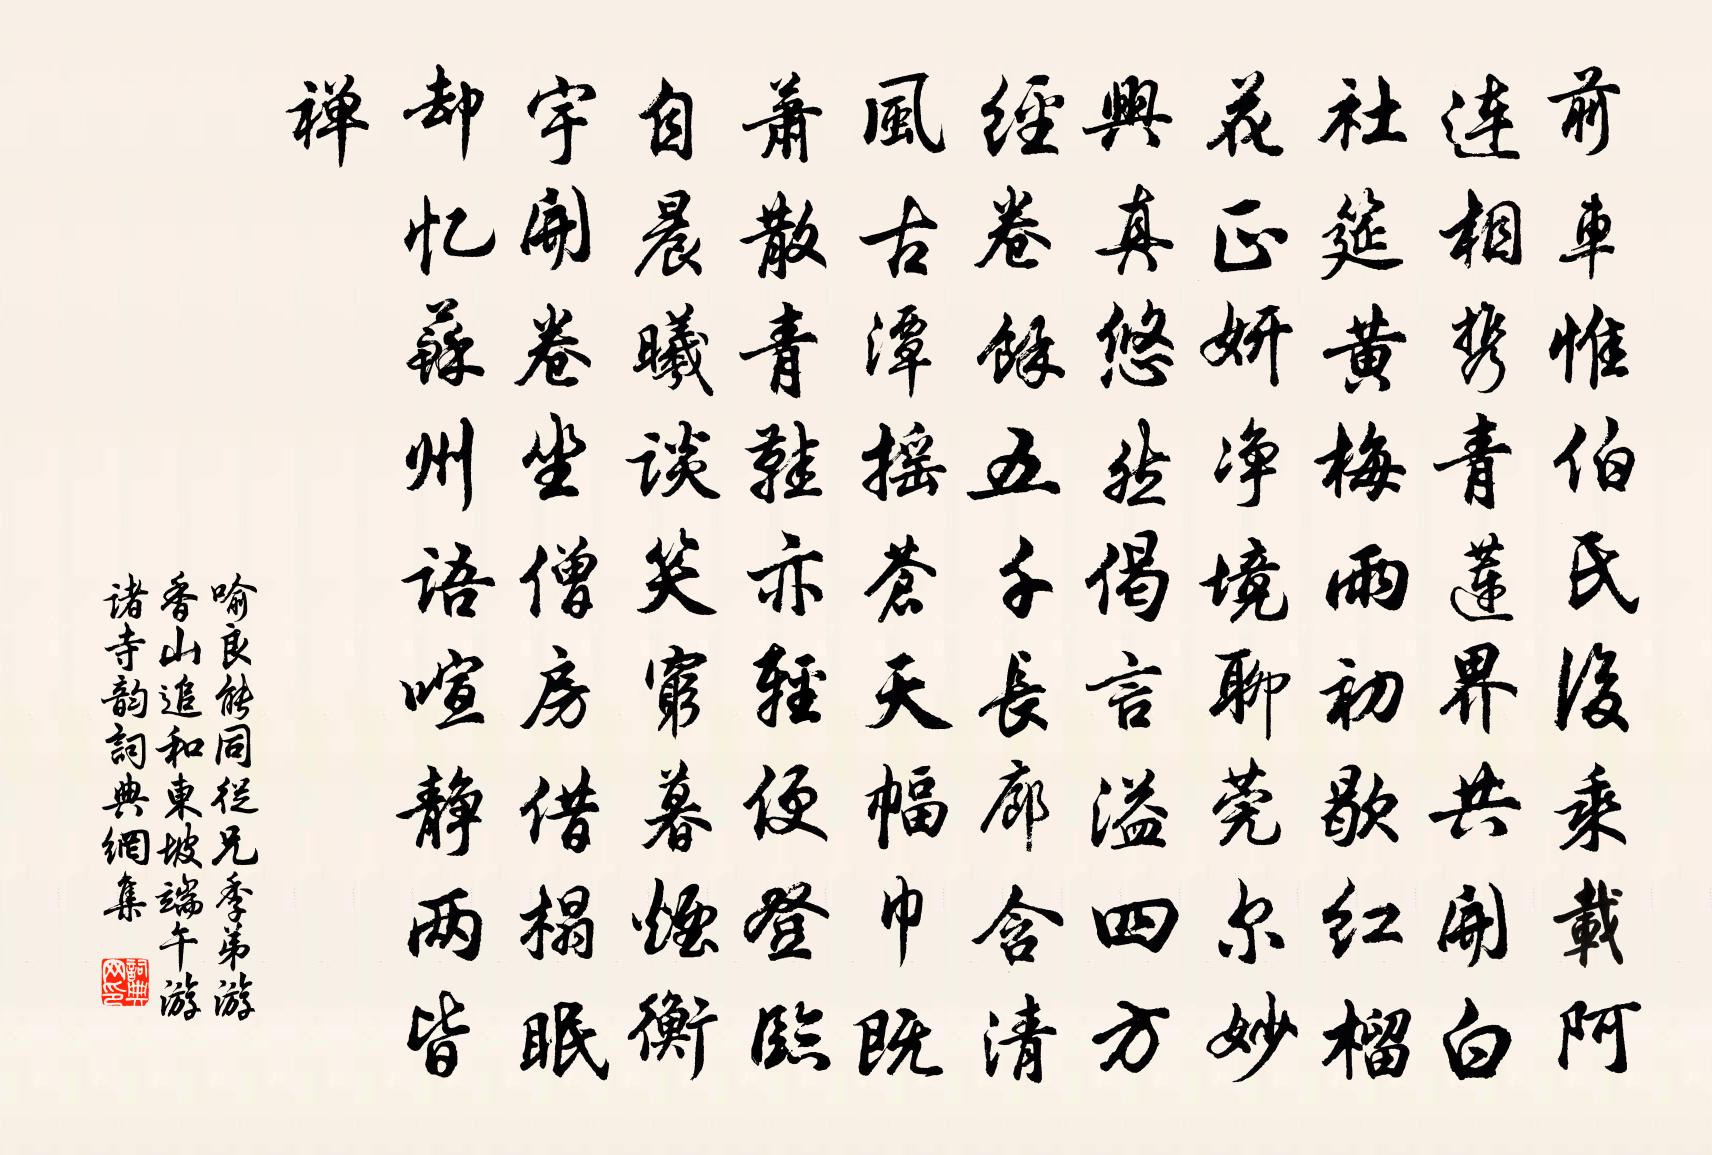 前車惟伯氏後乘載阿
連相携青蓮界共開白
社筵黄梅雨初歇紅榴
花正妍净境聊莞尔妙
興真悠然偈言溢四方
經卷餘五千長廊含清
風古潭摇蒼天幅巾既
蕭散青鞋亦輕便登臨
自晨曦談笑窮暮煙衡
宇開卷坐僧房借榻眠
却忆蘇州語喧静兩皆
禅
喻良能同從兄季弟游
香山追和東坡端午游
诸寺韵詞典網集
詞典
网印